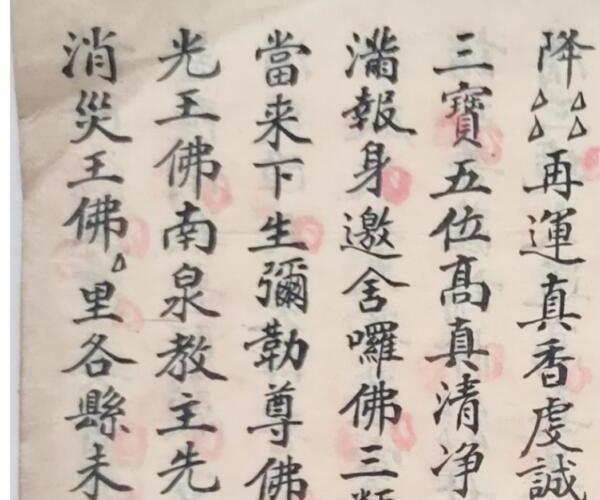 降△△△△再運真香虔誠
三寶五位高真清净
滿報身邀舍囉佛三類
當来下生彌勒尊佛
光王佛南泉教主先
消災王佛△里各縣未